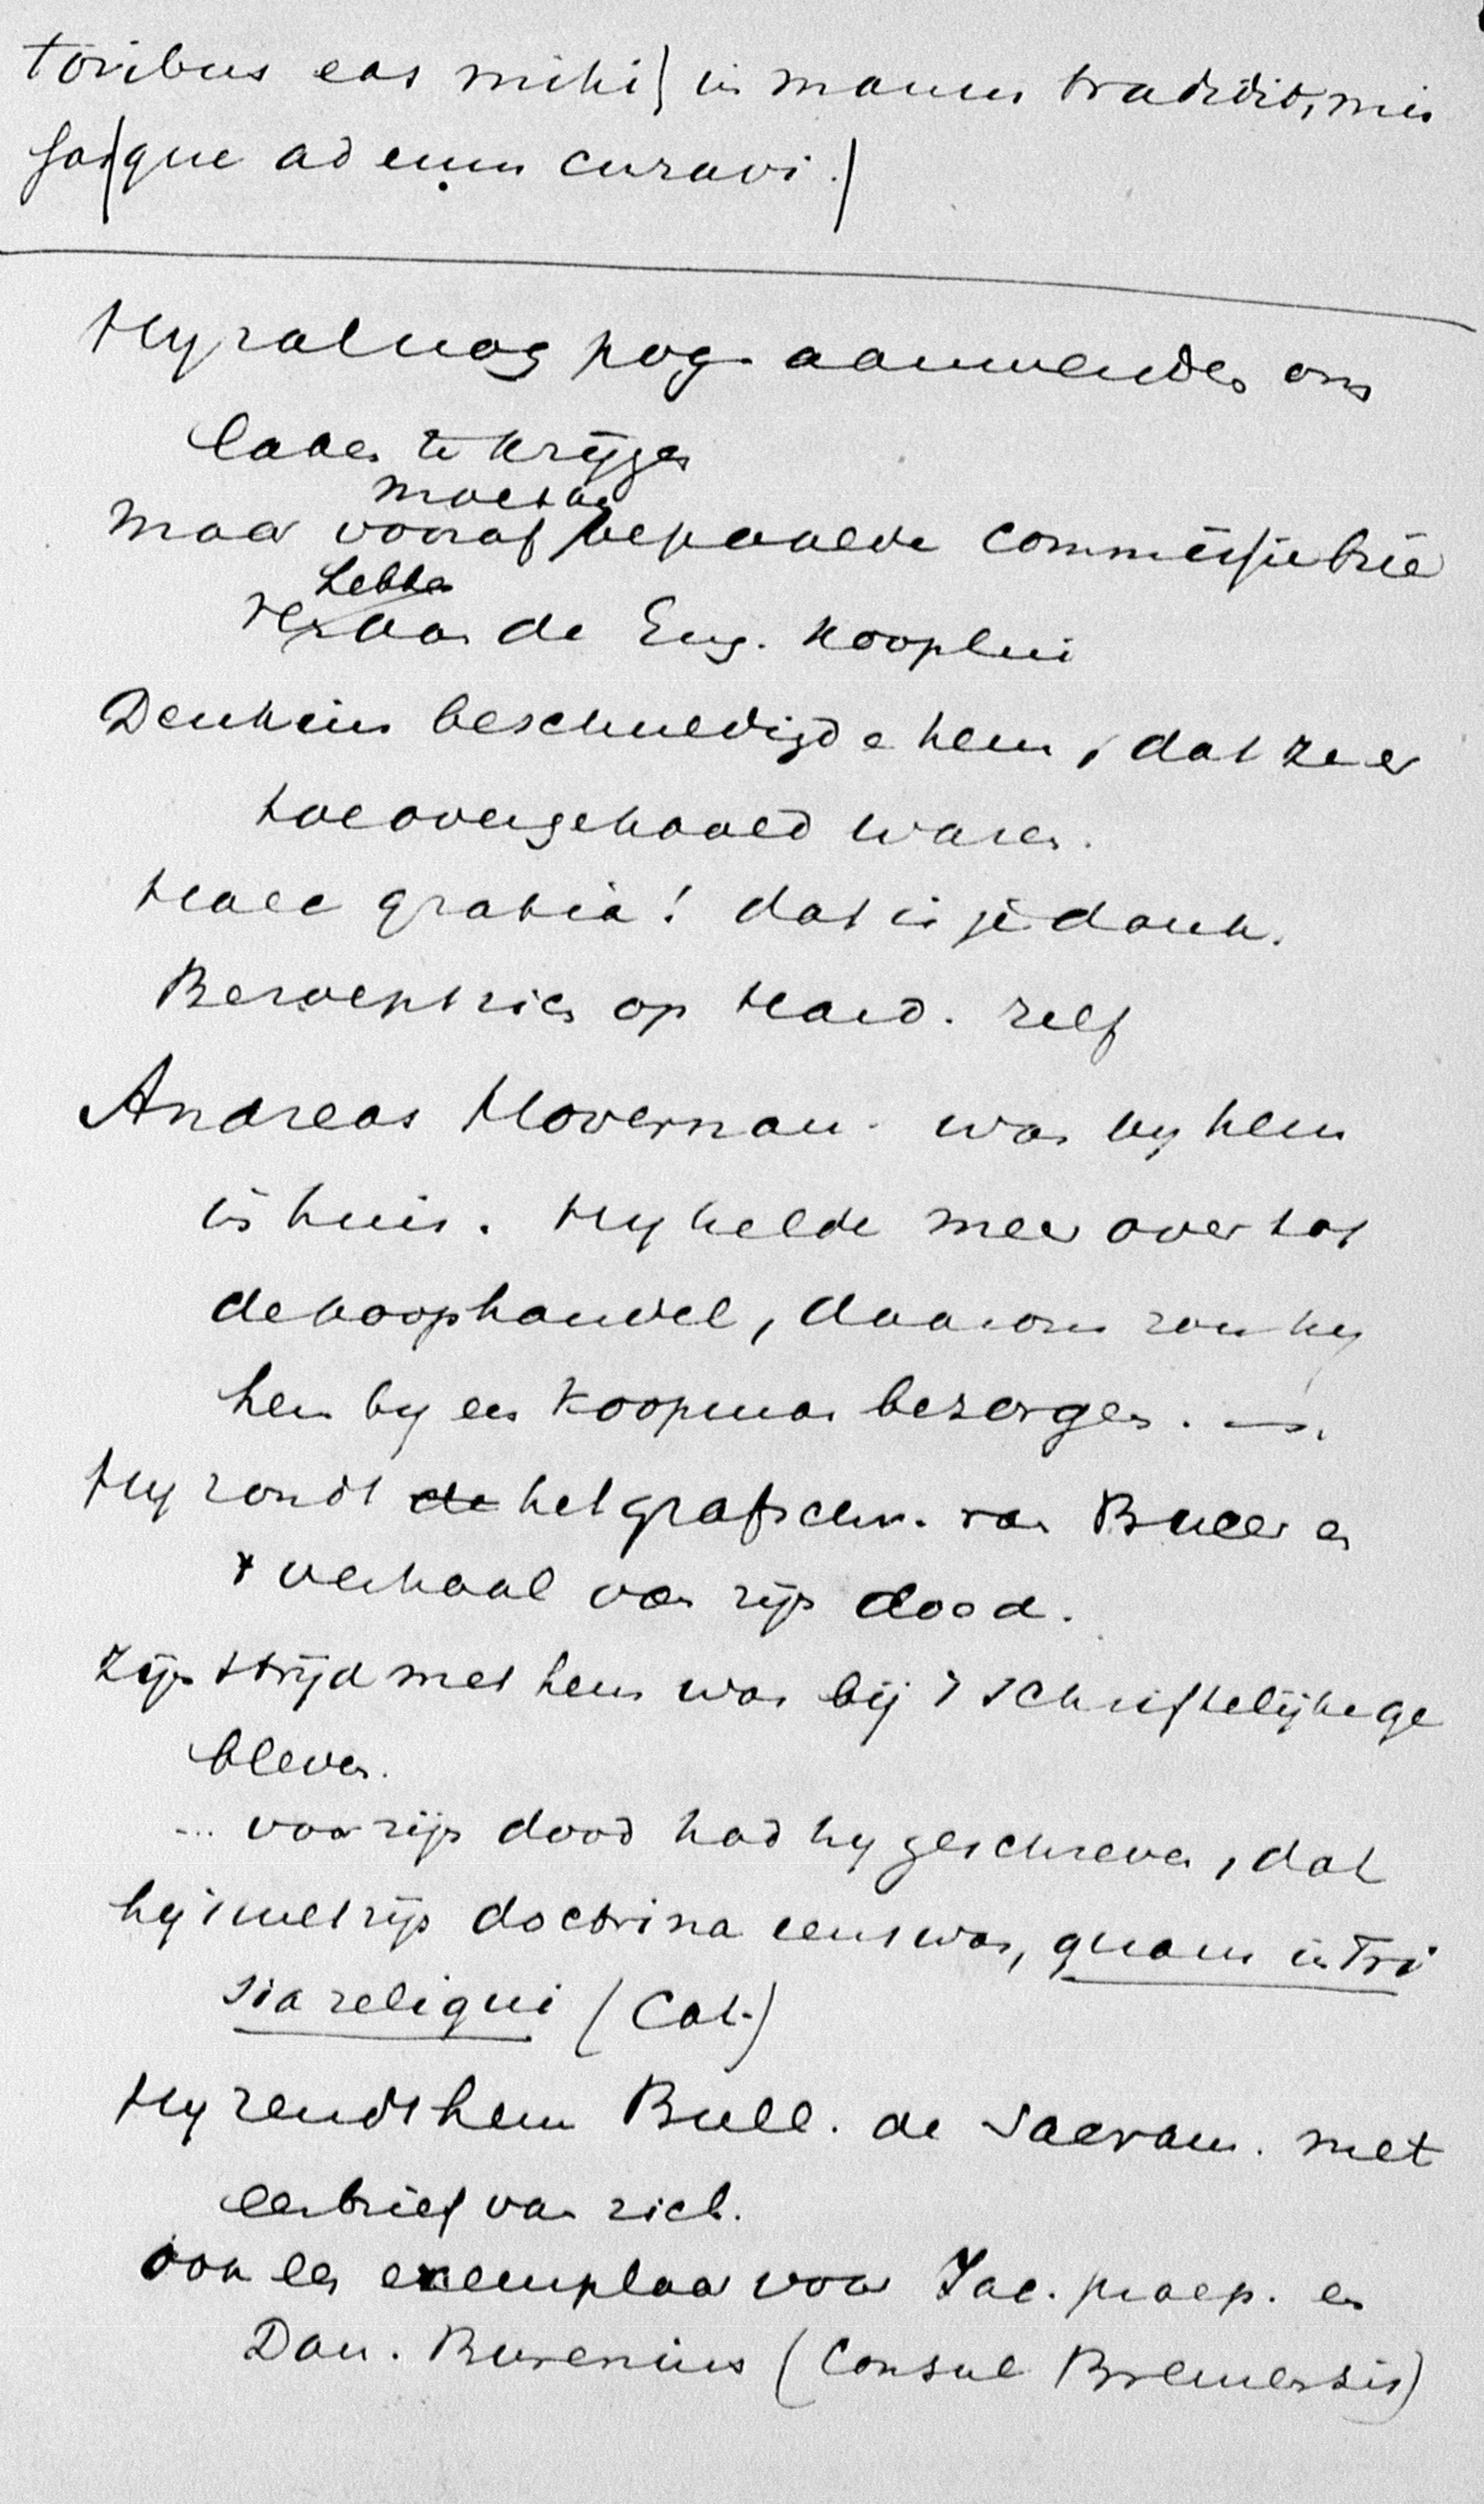 toribus eas mihi in manus tradidit, mis
sasque ad eum curavi.
Hy zal nog pog. aanwenden om
laken te krijgen
moeten
maar vooraf bepaalde commissiebrie
hebben
ven van de Eng. kooplui
beschuldigde hem, dat ze er
toe overgehaald waren.
Male gratia! dat is je dank.
Beroept zich op Hard. zelf
Andreas Hoverman. was by hem
in huis. Hy helde meer over tot
de koophandel, daarom zou hy
hem by een koopman bezorgen. —.
Hy zondt de het grafschr. van Bucer en
't verhaal van zijn dood.
Zijn strijd met hem was bij 't schriftelijke ge
bleven.
... voor zijn dood had hy geschreven, dat
hij 't met zijn doctrina eens was, quam in Fri
sia reliqui (Cat.)
Hy zendt hem Bull. de Sacram. met
een brief van zich.
ook een exemplaar voor Jac. praep. en
Dan. Burenius (Consul Bremensis)